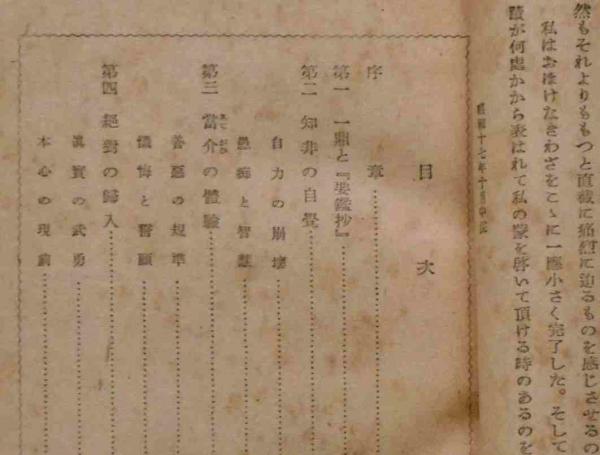 然もそれよりももつと直截に痛烈に迫るものを感じさせるの
私はおほけたきわざをこゝに一應小さく完了した。そして
蹟が何處かから表はれて私の蒙を啓いて頂ける時のあるのを
昭和十七年十月中
目次
序章
第一 一鼎と『要鑑抄』
第二 知非の自覺
自力の崩壞
愚痴と智慧
第三 當介の體驗
善惡の規準
懺悔と誓願
第四 絕對の歸入
眞實の武勇
本心の現前